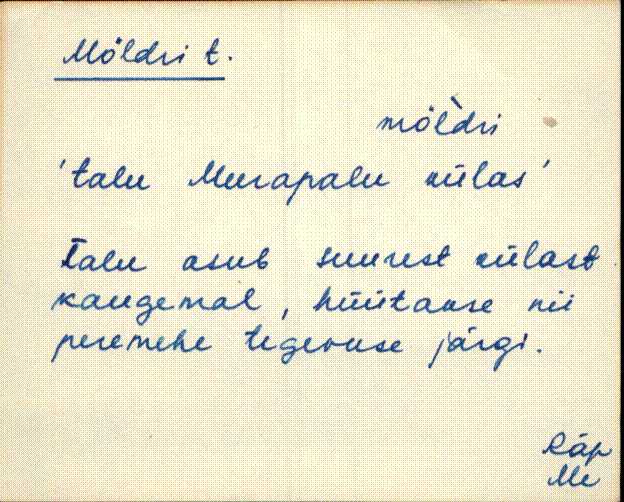 Möldri t.
möl̀dri
'talu Meerapalu külas'
Talu asub suurest külast
kaugemal, hüütakse nii
peremehe tegevuse järgi.
Räp
Me